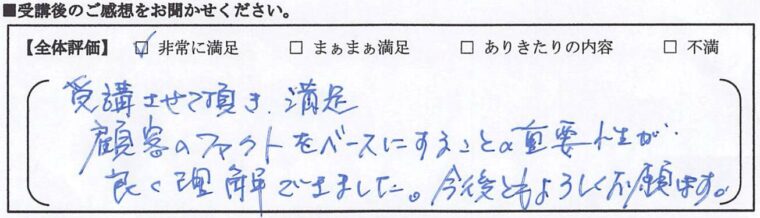 ■受講後のご感想をお聞かせください。
【全体評価】 ☑ 非常に満足 □ まぁまぁ満足 □ ありきたりの内容 □ 不満
受講させて頂き、満足
顧客のファクトをベースにすることの重要性が
良く理解できました。今後ともよろしくお願います。